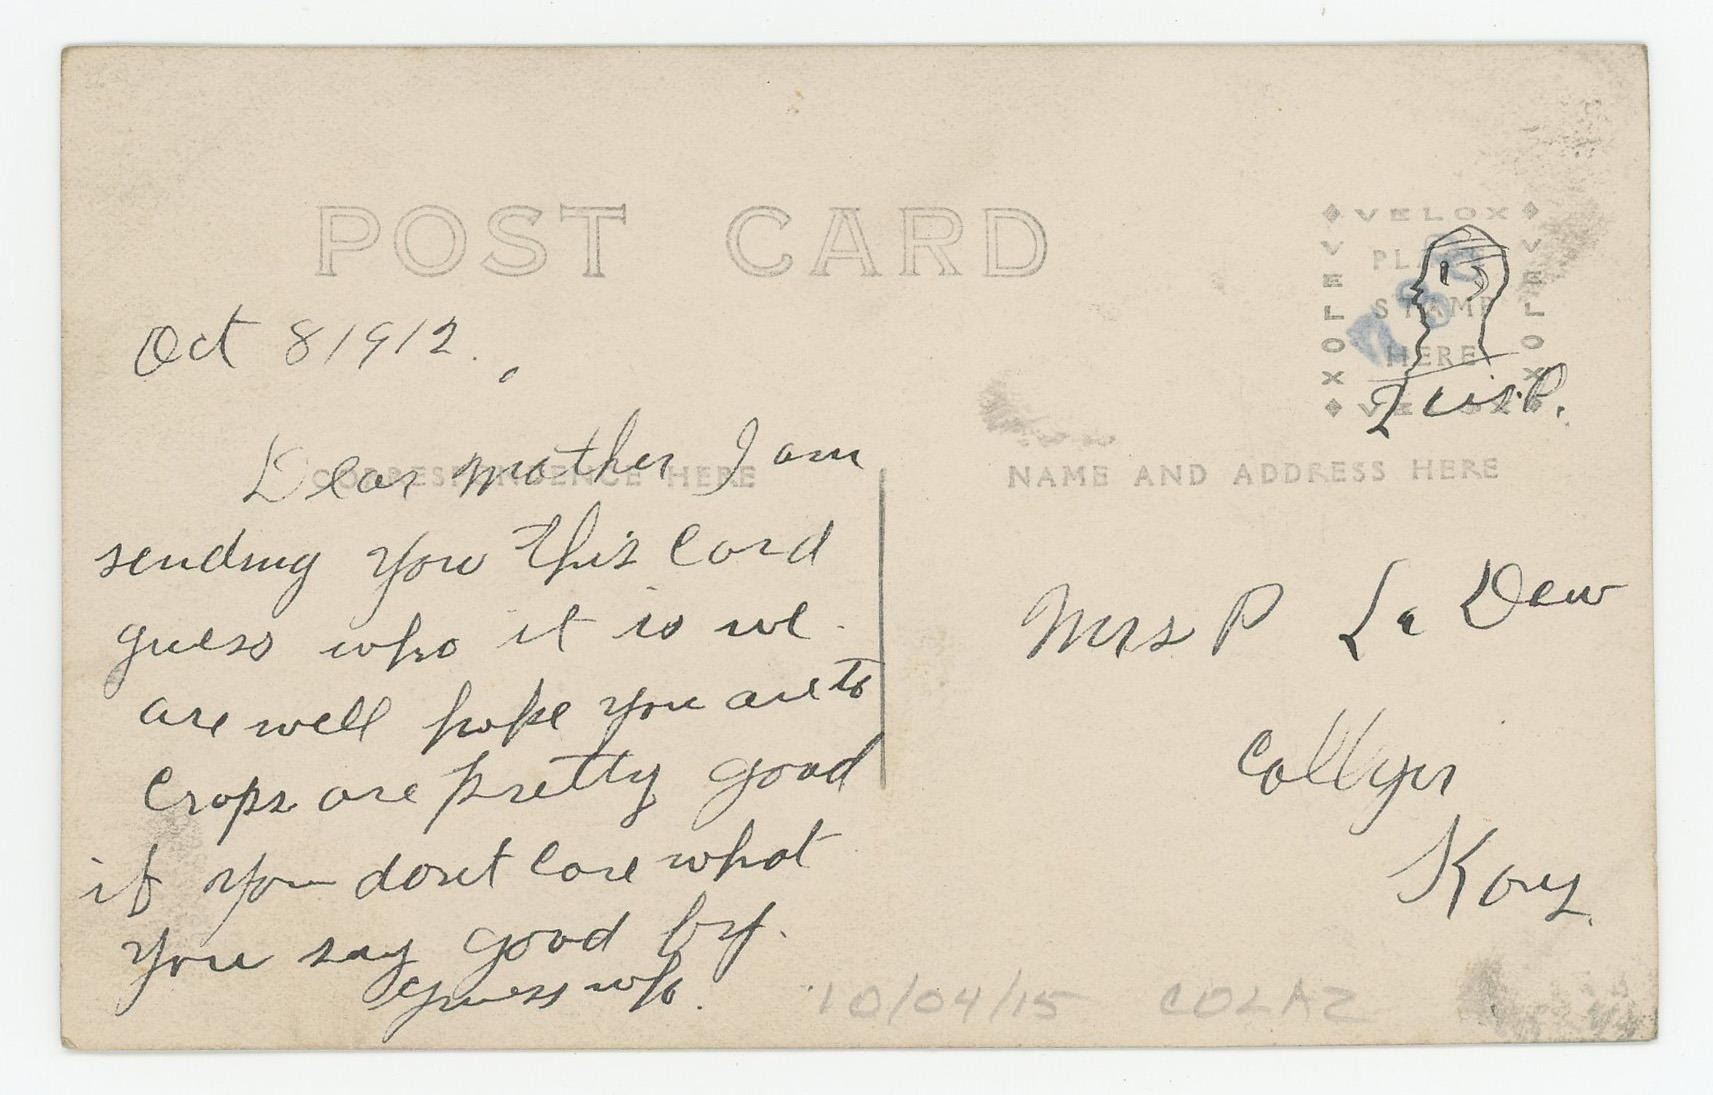 POST CARD
VELOX
VELOX
VELOX
VELOX
PLACE
STAMP
HERE
Oct 8 1912.
CORRESPONDENCE HERE
Dear mother I am
sending you this card
guess who it is we
are well hope you are to
crops are pretty good
if you dont care what
you say good by.
guess who.
NAME AND ADDRESS HERE
Mrs P La Dew
Collyer
Kans.
10/04/15 COLAZ